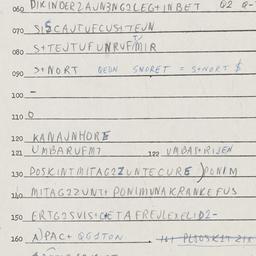 060 DIKINDERZAUN3NG2LEG+INBET Q2
070 SISCAJTUFCUS+TEJN
080 S+TEJTUFUNRUFMIR
090 S+NORT QEUN SNORET = S+NORT $
100 -
110 0
120 KANAUNHORE
121 UMBARUFMT 122 UMBA++RIJEN
130 POSKINTMITAG2ZUNTECURE )PONIM
140 MITAG2ZUNT+ PONIMUNAKRANKEFUS
150 ERTG2SVIS+C+ETAFREJLEXELID2-
160 A)PAC+ QGSTON